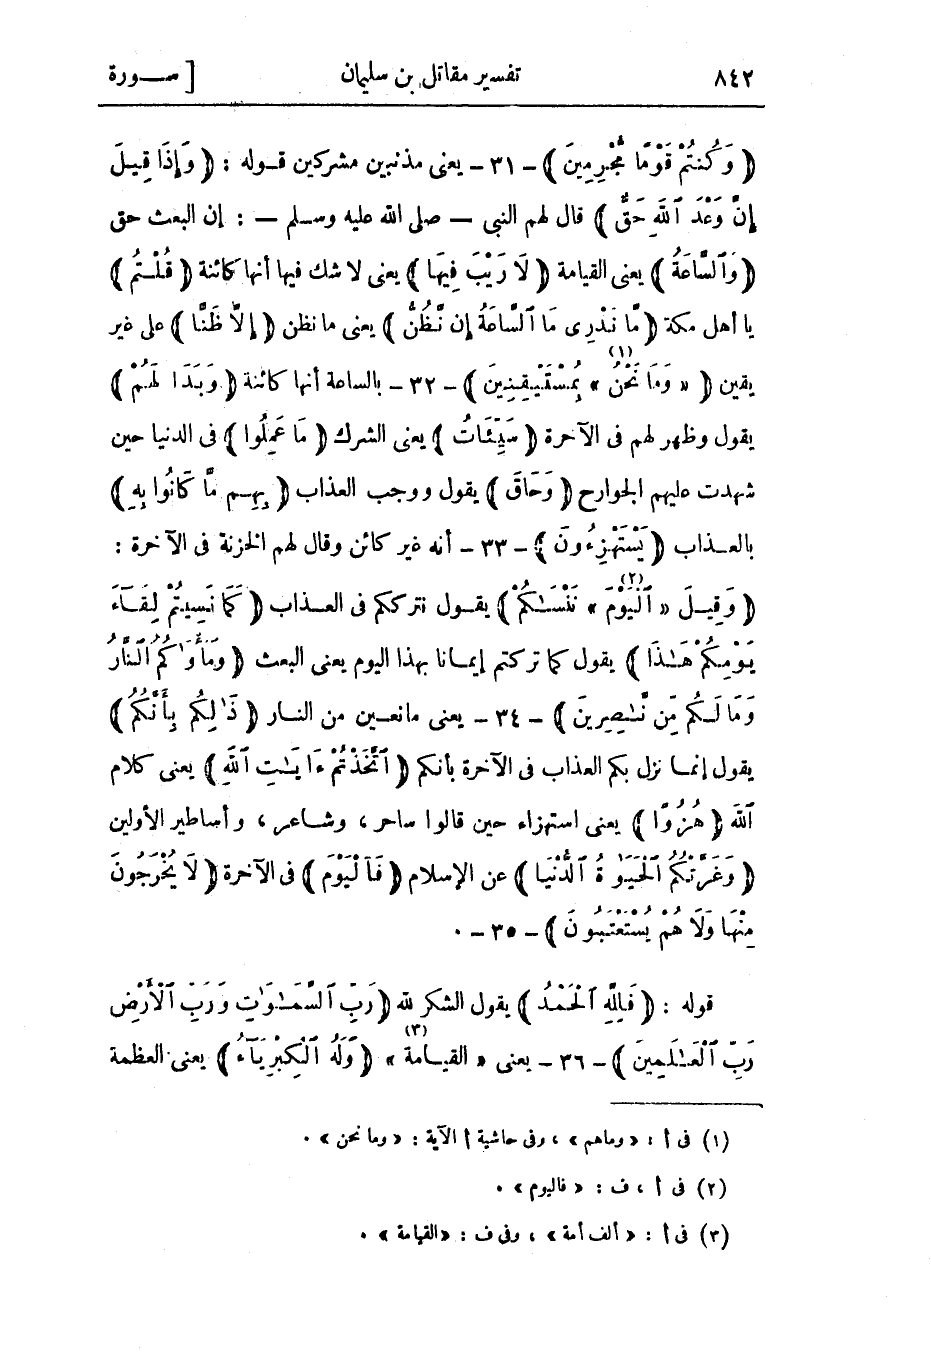 ٨٤٢ تفسير مقاتل بن سليمان [ سـورة
﴿ وَكُنتُمْ قَوْمًا مُّجْرِمِينَ ﴾ - ٣١ - يعنى مذنبين مشركين قوله : ﴿ وَإِذَا قِيلَ
إِنَّ وَعْدَ ٱللَّهِ حَقٌّ ﴾ قال لهم النبى — صلى الله عليه وسلم — : إن البعث حق
﴿ وَٱلسَّاعَةُ ﴾ يعنى القيامة ﴿ لَا رَيْبَ فِيهَا ﴾ يعنى لا شك فيها أنها كائنة ﴿ قُلْتُم ﴾
يا أهل مكة ﴿ مَّا نَدْرِى مَا ٱلسَّاعَةُ إِن نَّظُنُّ ﴾ يعنى ما نظن ﴿ إِلَّا ظَنًّا ﴾ على غير
يقين ﴿ « وَمَا نَحْنُ » (١) بِمُسْتَيْقِنِينَ ﴾ - ٣٢ - بالساعة أنها كائنة ﴿ وَبَدَا لَهُمْ ﴾
يقول وظهر لهم فى الآخرة ﴿ سَيِّئَاتُ ﴾ يعنى الشرك ﴿ مَا عَمِلُوا ﴾ فى الدنيا حين
شهدت عليهم الجوارح ﴿ وَحَاقَ ﴾ يقول ووجب العذاب ﴿ بِهِم مَّا كَانُوا بِهِ ﴾
بالعذاب ﴿ يَسْتَهْزِءُونَ ﴾ - ٣٣ - أنه غير كائن وقال لهم الخزنة فى الآخرة :
﴿ وَقِيلَ « ٱلْيَوْمَ » (٢) نَنْسَىٰكُمْ ﴾ يقول نترككم فى العذاب ﴿ كَمَا نَسِيتُمْ لِقَآءَ
يَوْمِكُمْ هَٰذَا ﴾ يقول كما تركتم إيمانا بهذا اليوم يعنى البعث ﴿ وَمَأْوَاكُمُ ٱلنَّارُ
وَمَا لَكُم مِّن نَّٰصِرِينَ ﴾ - ٣٤ - يعنى مانعين من النار ﴿ ذَٰلِكُم بِأَنَّكُمُ ﴾
يقول إنما نزل بكم العذاب فى الآخرة بأنكم ﴿ ٱتَّخَذْتُمْ ءَايَٰتِ ٱللَّهِ ﴾ يعنى كلام
ٱللَّه ﴿ هُزُوًا ﴾ يعنى استهزاء حين قالوا ساحر ، وشاعر ، وأساطير الأولين
﴿ وَغَرَّتْكُمُ ٱلْحَيَوٰةُ ٱلدُّنْيَا ﴾ عن الإسلام ﴿ فَٱلْيَوْمَ ﴾ فى الآخرة ﴿ لَا يُخْرَجُونَ
مِنْهَا وَلَا هُمْ يُسْتَعْتَبُونَ ﴾ - ٣٥ - .
قوله : ﴿ فَلِلَّهِ ٱلْحَمْدُ ﴾ يقول الشكر لله ﴿ رَبِّ ٱلسَّمَٰوَٰتِ وَرَبِّ ٱلْأَرْضِ
رَبِّ ٱلْعَٰلَمِينَ ﴾ - ٣٦ - يعنى « القيامة » (٣) ﴿ وَلَهُ ٱلْكِبْرِيَآءُ ﴾ يعنى العظمة
(١) فى أ : « وماهم » ، وفى حاشية أ الآية : « وما نحن » .
(٢) فى أ ، ف : « فاليوم » .
(٣) فى أ : « ألف أمة » ، وفى ف : « القيامة » .